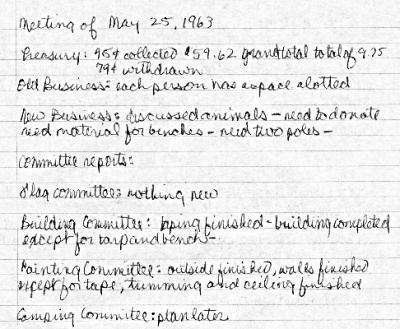 Meeting of May 25, 1963
Treasury: 45¢ collected $59.62 grand total total of 9.75
79¢ withdrawn
Old Business: each person has a space alotted
New Business: discussed animals - need to donate
need material for benches - need two poles -
Committee reports:
Flag committee: nothing new
Building Committee: taping finished - building completed
except for tarp and bench -
Painting Committee: outside finished, walls finished
except for tape, trimming and ceiling finished
Camping Committee: plan later